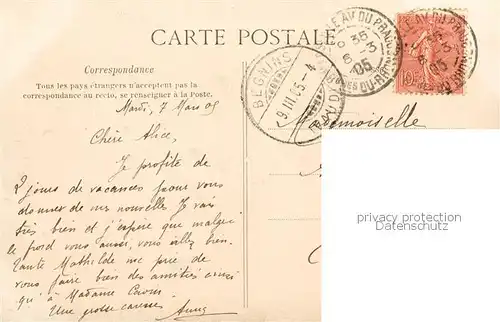 CARTE POSTALE
Correspondance
Tous les pays étrangers n'acceptent pas la
correspondance au recto, se renseigner à la Poste.
Mardi, 7 Mars 05
Chère Alice,
Je profite de
2 jours de vacances pour vous
donner de nos nouvelles. Je vais
très bien et j'espère que malgré
le froid vous aussi, vous allez bien.
Tante Mathilde me prie de
vous faire bien des amitiés ainsi
qu'à Madame
Une grosse caresse
BEGNINS
9.III.05.-4
(VAUD)
AV. DU
35
6-3
05
10
6-3
05
Mademoiselle
privacy protection
Datenschutz